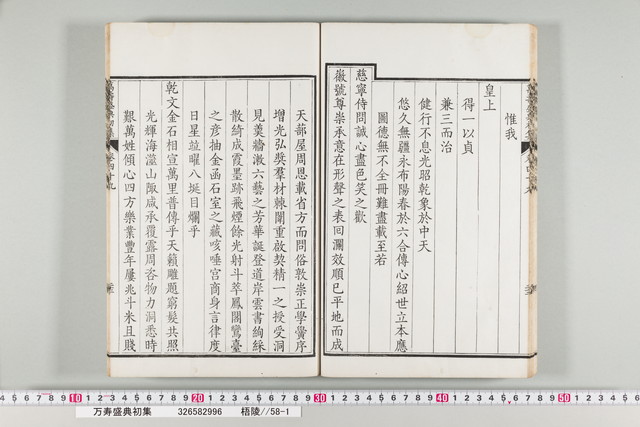 惟我
皇上
得一以貞
兼三而治
健行不息光昭乾象於中天
悠久無疆永布陽春於六合傳心紹世立本應
圖德無不全冊難盡載至若
慈寧侍問誠心盡色笑之歡
徽號尊崇承意在形聲之表回瀾效順已平地而成
天蔀屋周恩載省方而問俗敦崇正學黌序
增光弘獎羣材棘闈重啟契精一之授受洞
見羹牆漱六藝之芳華誕登道岸雲書絢綵
散綺成霞墨跡飛煙餘光射斗萃鳳閣鸞臺
之彦抽金函石室之藏咳唾宫商身言律度
日星竝曜八埏目爛乎
乾文金石相宣萬里普傳乎天籟雕題窮髮共照
光輝海澨山陬咸承覆露周咨物力洞悉時
艱萬姓傾心四方樂業豐年屢兆斗米且賤
万寿盛典初集 326582996 梧陵//58-1